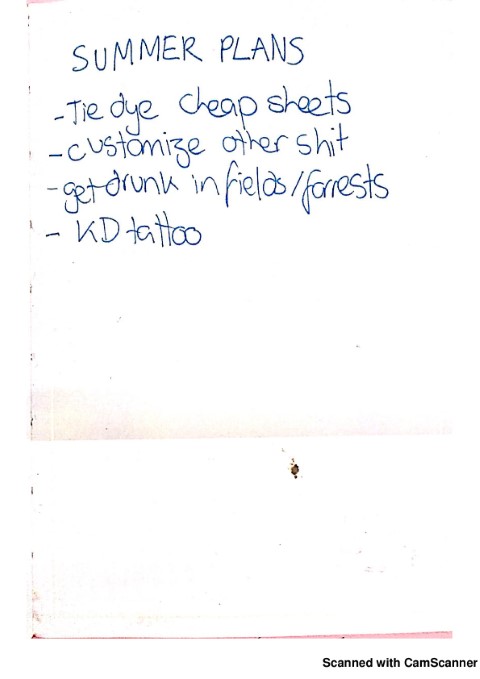 SUMMER PLANS
- Tie dye cheap sheets
- customize other shit
- get drunk in fields/forrests
- KD tattoo
Scanned with CamScanner